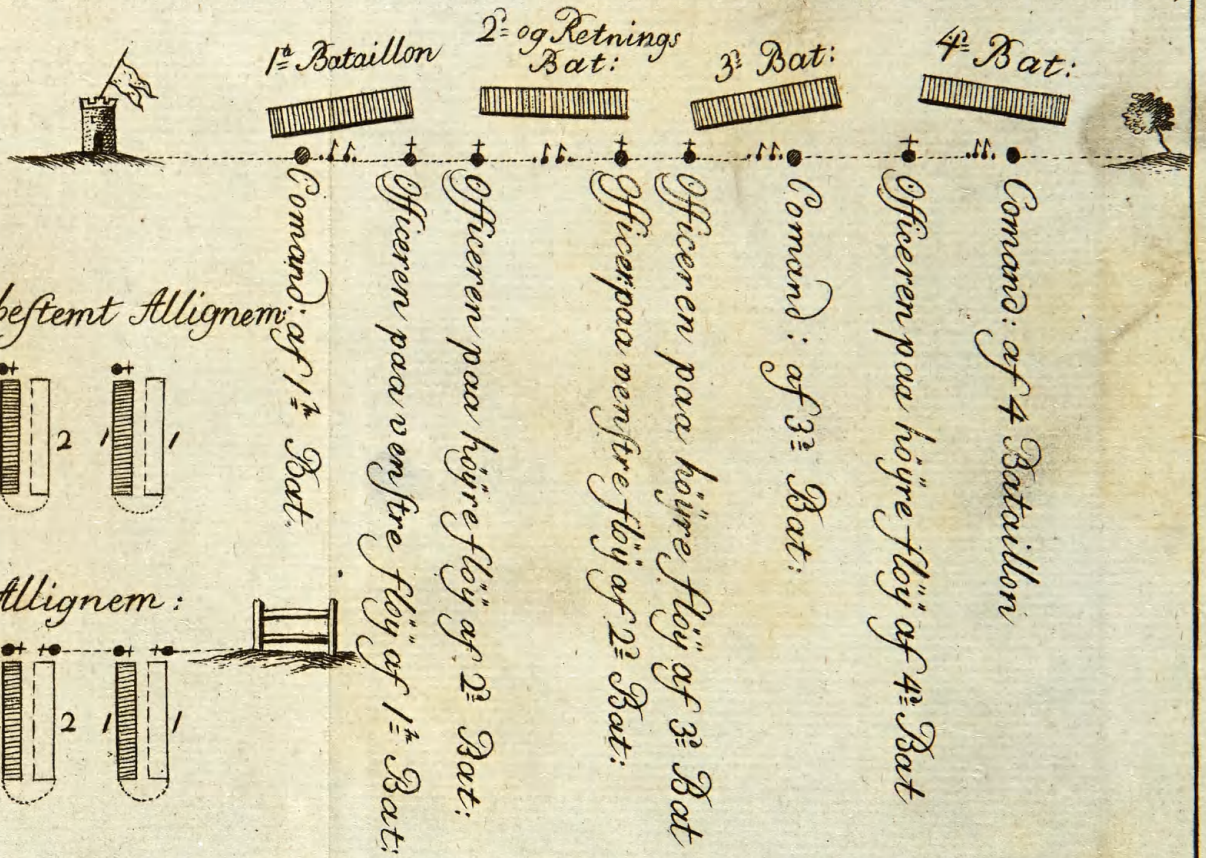 1ᵗᵉ Bataillon
2ᵈ og Retnings
Bat:
3ᵈ Bat:
4ᵈ Bat:
Comand: af 1ᵗᵉ Bat.
Officeren paa venstre fløÿ af 1ᵗᵉ Bat:
Officeren paa höÿre fløÿ af 2ᵈ Bat:
Officer: paa venstre fløÿ af 2ᵈ Bat:
Officeren paa höÿre flöÿ af 3ᵈ Bat
Comand: af 3ᵈ Bat:
Officeren paa höÿre flöÿ af 4ᵈ Bat
Comand: af 4 Bataillon
bestemt Allignem:
2 1 1
Allignem:
2 1 1